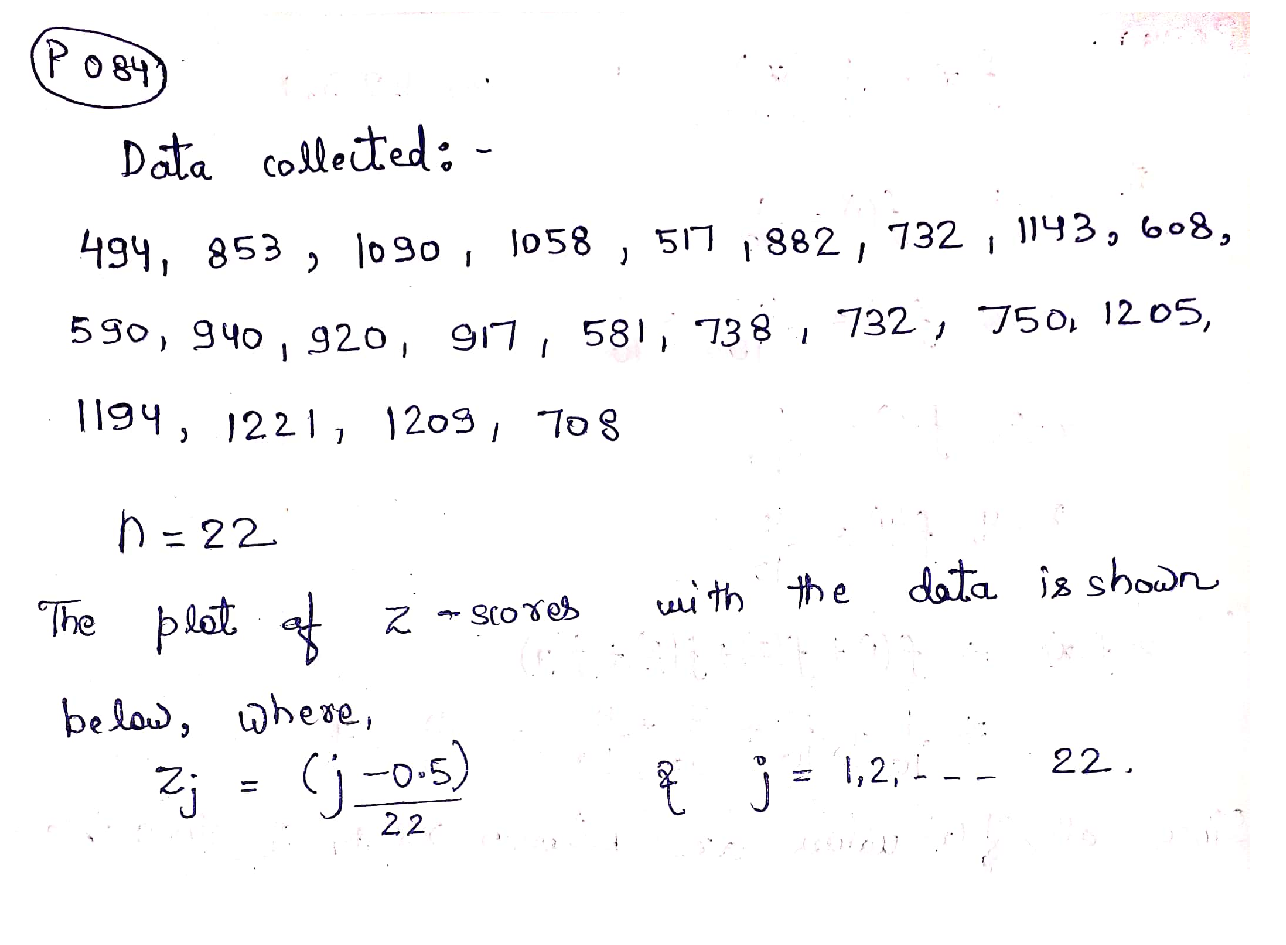 P 084
Data collected: -
494, 853, 1090, 1058, 517, 882, 732, 1143, 608,
590, 940, 920, 917, 581, 738, 732, 750, 1205,
1194, 1221, 1209, 708
n = 22
The plot of z-scores with the data is shown
below, where,
Zj = (j-0.5)/22 & j = 1,2, - - - 22.